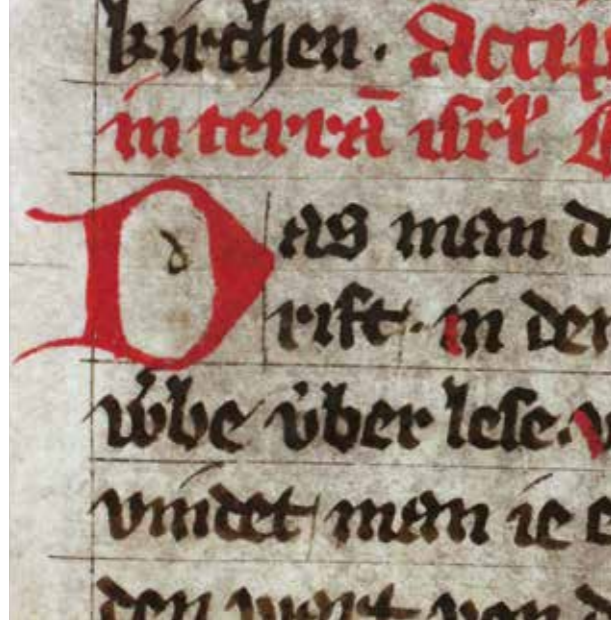 kirchen. Accip
in terrā isrl̕
Das man d
rift. in der
wͦbe vͥber lese. v
vindet man ie e
den wart von d